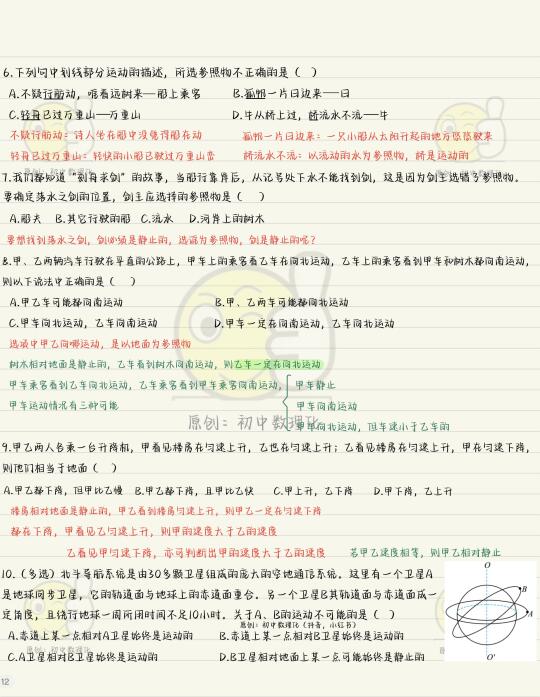 6.下列句中划线部分运动的描述，所选参照物不正确的是（ ）
A.不疑行舫动，唯看远树来——船上乘客 B.孤帆一片日边来——日
C.轻舟已过万重山——万重山 D.牛从桥上过，桥流水不流——牛
不疑行舫动：诗人坐在船中没觉得船在动 孤帆一片日边来：一只小船从太阳升起的地方悠悠驶来
轻舟已过万重山：轻快的小船已驶过万重山峦 桥流水不流：以流动的水为参照物，桥是运动的
7.我们都知道“刻舟求剑”的故事，当船行靠岸后，从记号处下水不能找到剑，这是因为剑主选错了参照物。
要确定落水之剑的位置，剑主应选择的参照物是（ ）
A.船夫 B.其它行驶的船 C.流水 D.河岸上的树木
要想找到落水之剑，剑必须是静止的，选谁为参照物，剑是静止的呢？
8.甲、乙两辆汽车行驶在平直的公路上，甲车上的乘客看乙车在向北运动，乙车上的乘客看到甲车和树木都向南运动，
则以下说法中正确的是（ ）
A.甲乙车可能都向南运动 B.甲、乙两车可能都向北运动
C.甲车向北运动，乙车向南运动 D.甲车一定在向南运动，乙车向北运动
选项中甲乙向哪运动，是以地面为参照物
树木相对地面是静止的，乙车看到树木向南运动，则乙车一定在向北运动
甲车乘客看到乙车向北运动，乙车乘客看到甲车乘客向南运动， 甲车静止
甲车运动情况有三种可能 甲车向南运动
甲车向北运动，但车速小于乙车的
原创：初中数理化
9.甲乙两人各乘一台升降机，甲看见楼房在匀速上升，乙也在匀速上升；乙看见楼房在匀速上升，甲在匀速下降，
则他们相当于地面（ ）
A.甲乙都下降，但甲比乙慢 B.甲乙都下降，且甲比乙快 C.甲上升，乙下降 D.甲下降，乙上升
楼房相对地面是静止的，甲乙看到楼房匀速上升，则甲乙一定在匀速下降
都在下降，甲看见乙匀速上升，则甲的速度大于乙的速度
乙看见甲匀速下降，亦可判断出甲的速度大于乙的速度 若甲乙速度相等，则甲乙相对静止
10.（多选）北斗导航系统是由30多颗卫星组成的庞大的空地通信系统。这里有一个卫星A
是地球同步卫星，它的轨道面与地球上的赤道面重合。另一个卫星B其轨道面与赤道面成一
定角度，且绕行地球一周所用时间不足10小时。关于A、B的运动不可能的是（ ）
原创：初中数理化（抖音，小红书）
A.赤道上某一点相对A卫星始终是运动的 B.赤道上某一点相对B卫星始终是运动的
C.A卫星相对B卫星始终是运动的 D.B卫星相对地面上某一点可能始终是静止的
O
B
A
O'
12